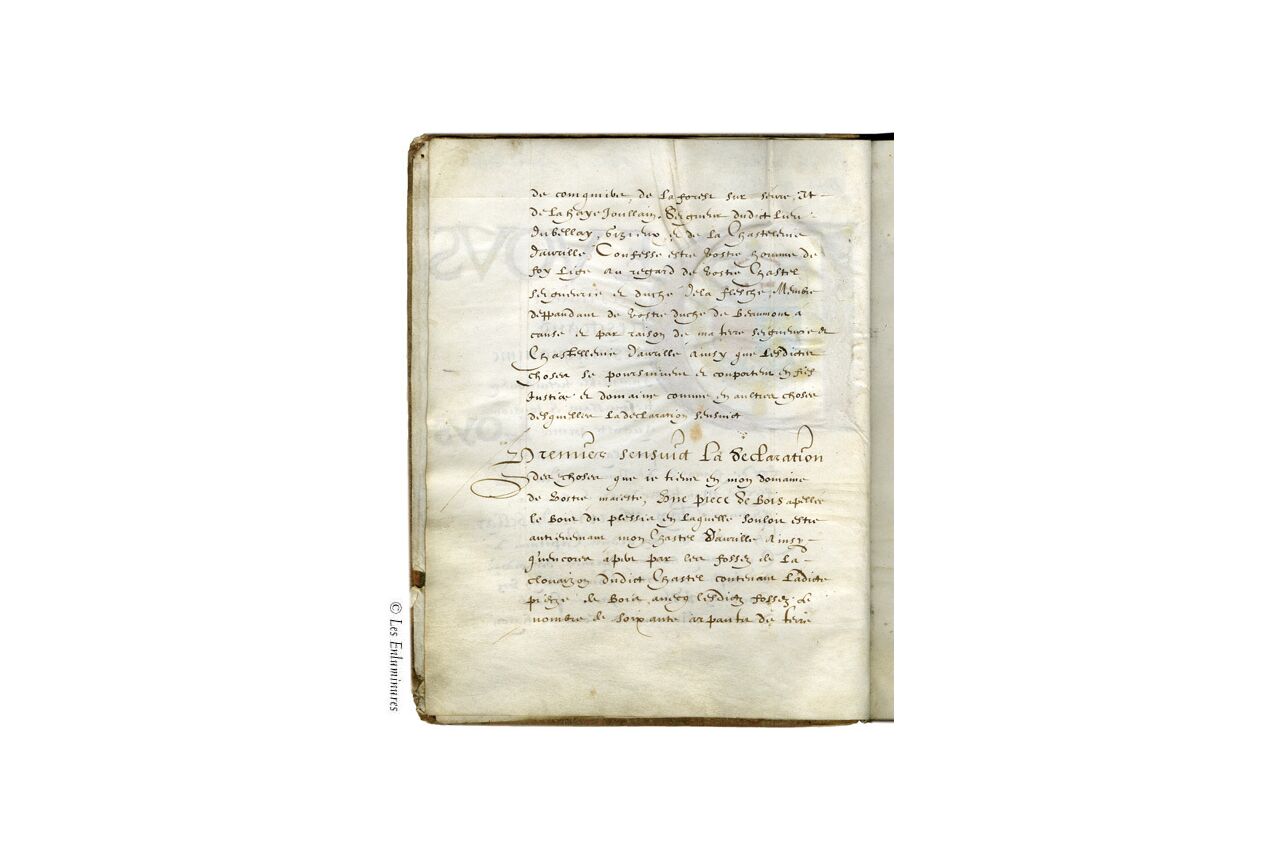 de la forest sur seure, Et
de la haye Joullain, Seigneur dudict Lieu
du bellay, Gizieux, et de la Chastelenie
davrille, Confesse estre Vostre homme de
foy Lige au regard de Vostre Chastel
seigneurie et duche de la flesche, Membre
deppandant de Vostre duche de Beaumont a
cause et par raison de ma terre seigneurie et
Chastellenie davrille Ainsy que Lesdictes
choses se poursuivent et comportent en fief
Justice et domaine comme en aultres choses
desquelles la declaration sensuict
Premier sensuict La declaration
des choses que ie tiens en mon domaine
de Vostre maieste, Une piece de Bois apellee
le Bois du plessis en laquelle souloit estre
antienemant mon Chastel davrille Ainsy
quencores apert par les fossez de la
clouaizon dudict Chastel contenant Ladicte
pieze de Bois avecq lesdictz fossez le
nombre de soixante arpantz de terre
© Les Enluminures